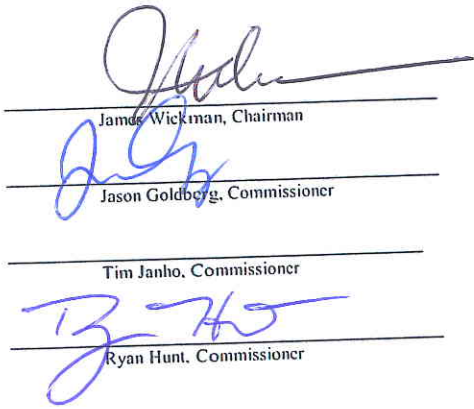 James Wickman, Chairman
Jason Goldberg, Commissioner
Tim Janho, Commissioner
Ryan Hunt
Ryan Hunt, Commissioner